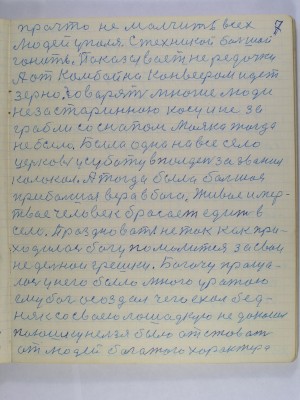 7
что не молчит в всех
людей у поля. С техникой большей
гонить. Показывает не редочка
А от Комбайна Конвеером идет
зерно, товарят многие люди
не за старинною косу и не за
грабли со снопом Маяка тогда
не была. Была одна на все село
церковь и субату в полдет за звонил
колокол. А тогда была большая
прибольшая вера в бога. Живое и мер-
твое человек бросает едит в
село. Праздновать не так как при-
ходилась богу помолится за свои
недельной грешки. Богачу проща-
лась у него было много
ему бог создал чего ехал бед-
няк со своею лошадкую не доехал
нельзя было отстоват
от людей богатого характера